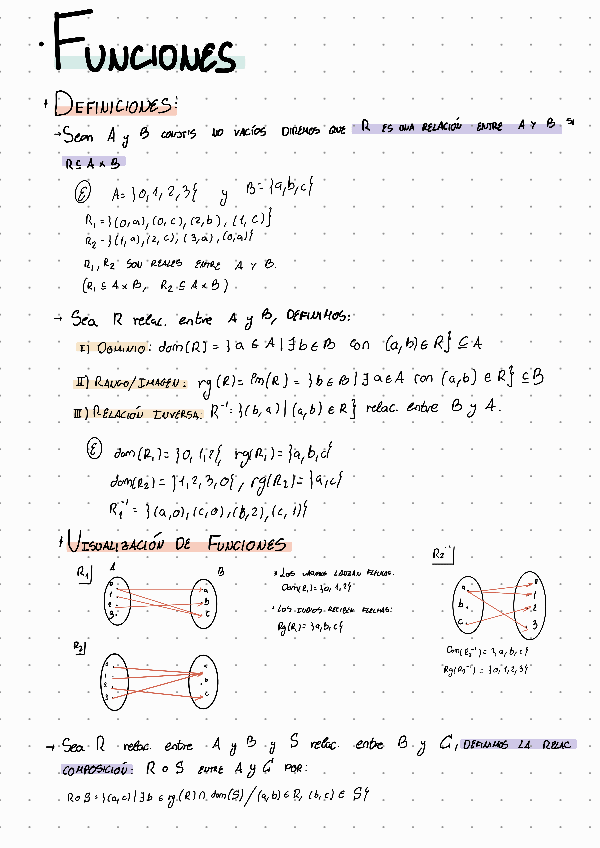 · FUNCIONES
DEFINICIONES:
→ Sean A y B conjts no vacíos diremos que R es una relación entre A y B si
R ⊆ A × B
Ⓔ A = {0, 1, 2, 3} y B = {a, b, c}
R₁ = {(0, a), (0, c), (2, b), (1, c)}
R₂ = {(1, a), (2, c), (3, a), (0, a)}
R₁, R₂ son reales entre A y B.
(R₁ ⊆ A × B, R₂ ⊆ A × B)
→ Sea R relac. entre A y B, definimos:
I) Dominio: dom(R) = {a ∈ A | ∃ b ∈ B con (a, b) ∈ R} ⊆ A
II) Rango/Imagen: rg(R) = Im(R) = {b ∈ B | ∃ a ∈ A con (a, b) ∈ R} ⊆ B
III) Relación inversa: R⁻¹ = {(b, a) | (a, b) ∈ R} relac. entre B y A.
Ⓔ dom(R₁) = {0, 1, 2}, rg(R₁) = {a, b, c}
dom(R₂) = {1, 2, 3, 0}, rg(R₂) = {a, c}
R₁⁻¹ = {(a, 0), (c, 0), (b, 2), (c, 1)}
VISUALIZACIÓN DE FUNCIONES
R₁
A
B
0
1
2
3
a
b
c
Los
lanzan flechas.
Dom(R₁) = {0, 1, 2}
Los
reciben flechas:
Rg(R₁) = {a, b, c}
R₂⁻¹
a
b
c
0
1
2
3
Dom(R₂⁻¹) = {a, b, c}
Rg(R₂⁻¹) = {0, 1, 2, 3}
R₂
0
1
2
3
a
b
c
→ Sea R relac. entre A y B y S relac. entre B y C, definimos la relac
composición: R o S entre A y C por:
R o S = {(a, c) | ∃ b ∈ rg(R) ∩ dom(S) / (a, b) ∈ R, (b, c) ∈ S}